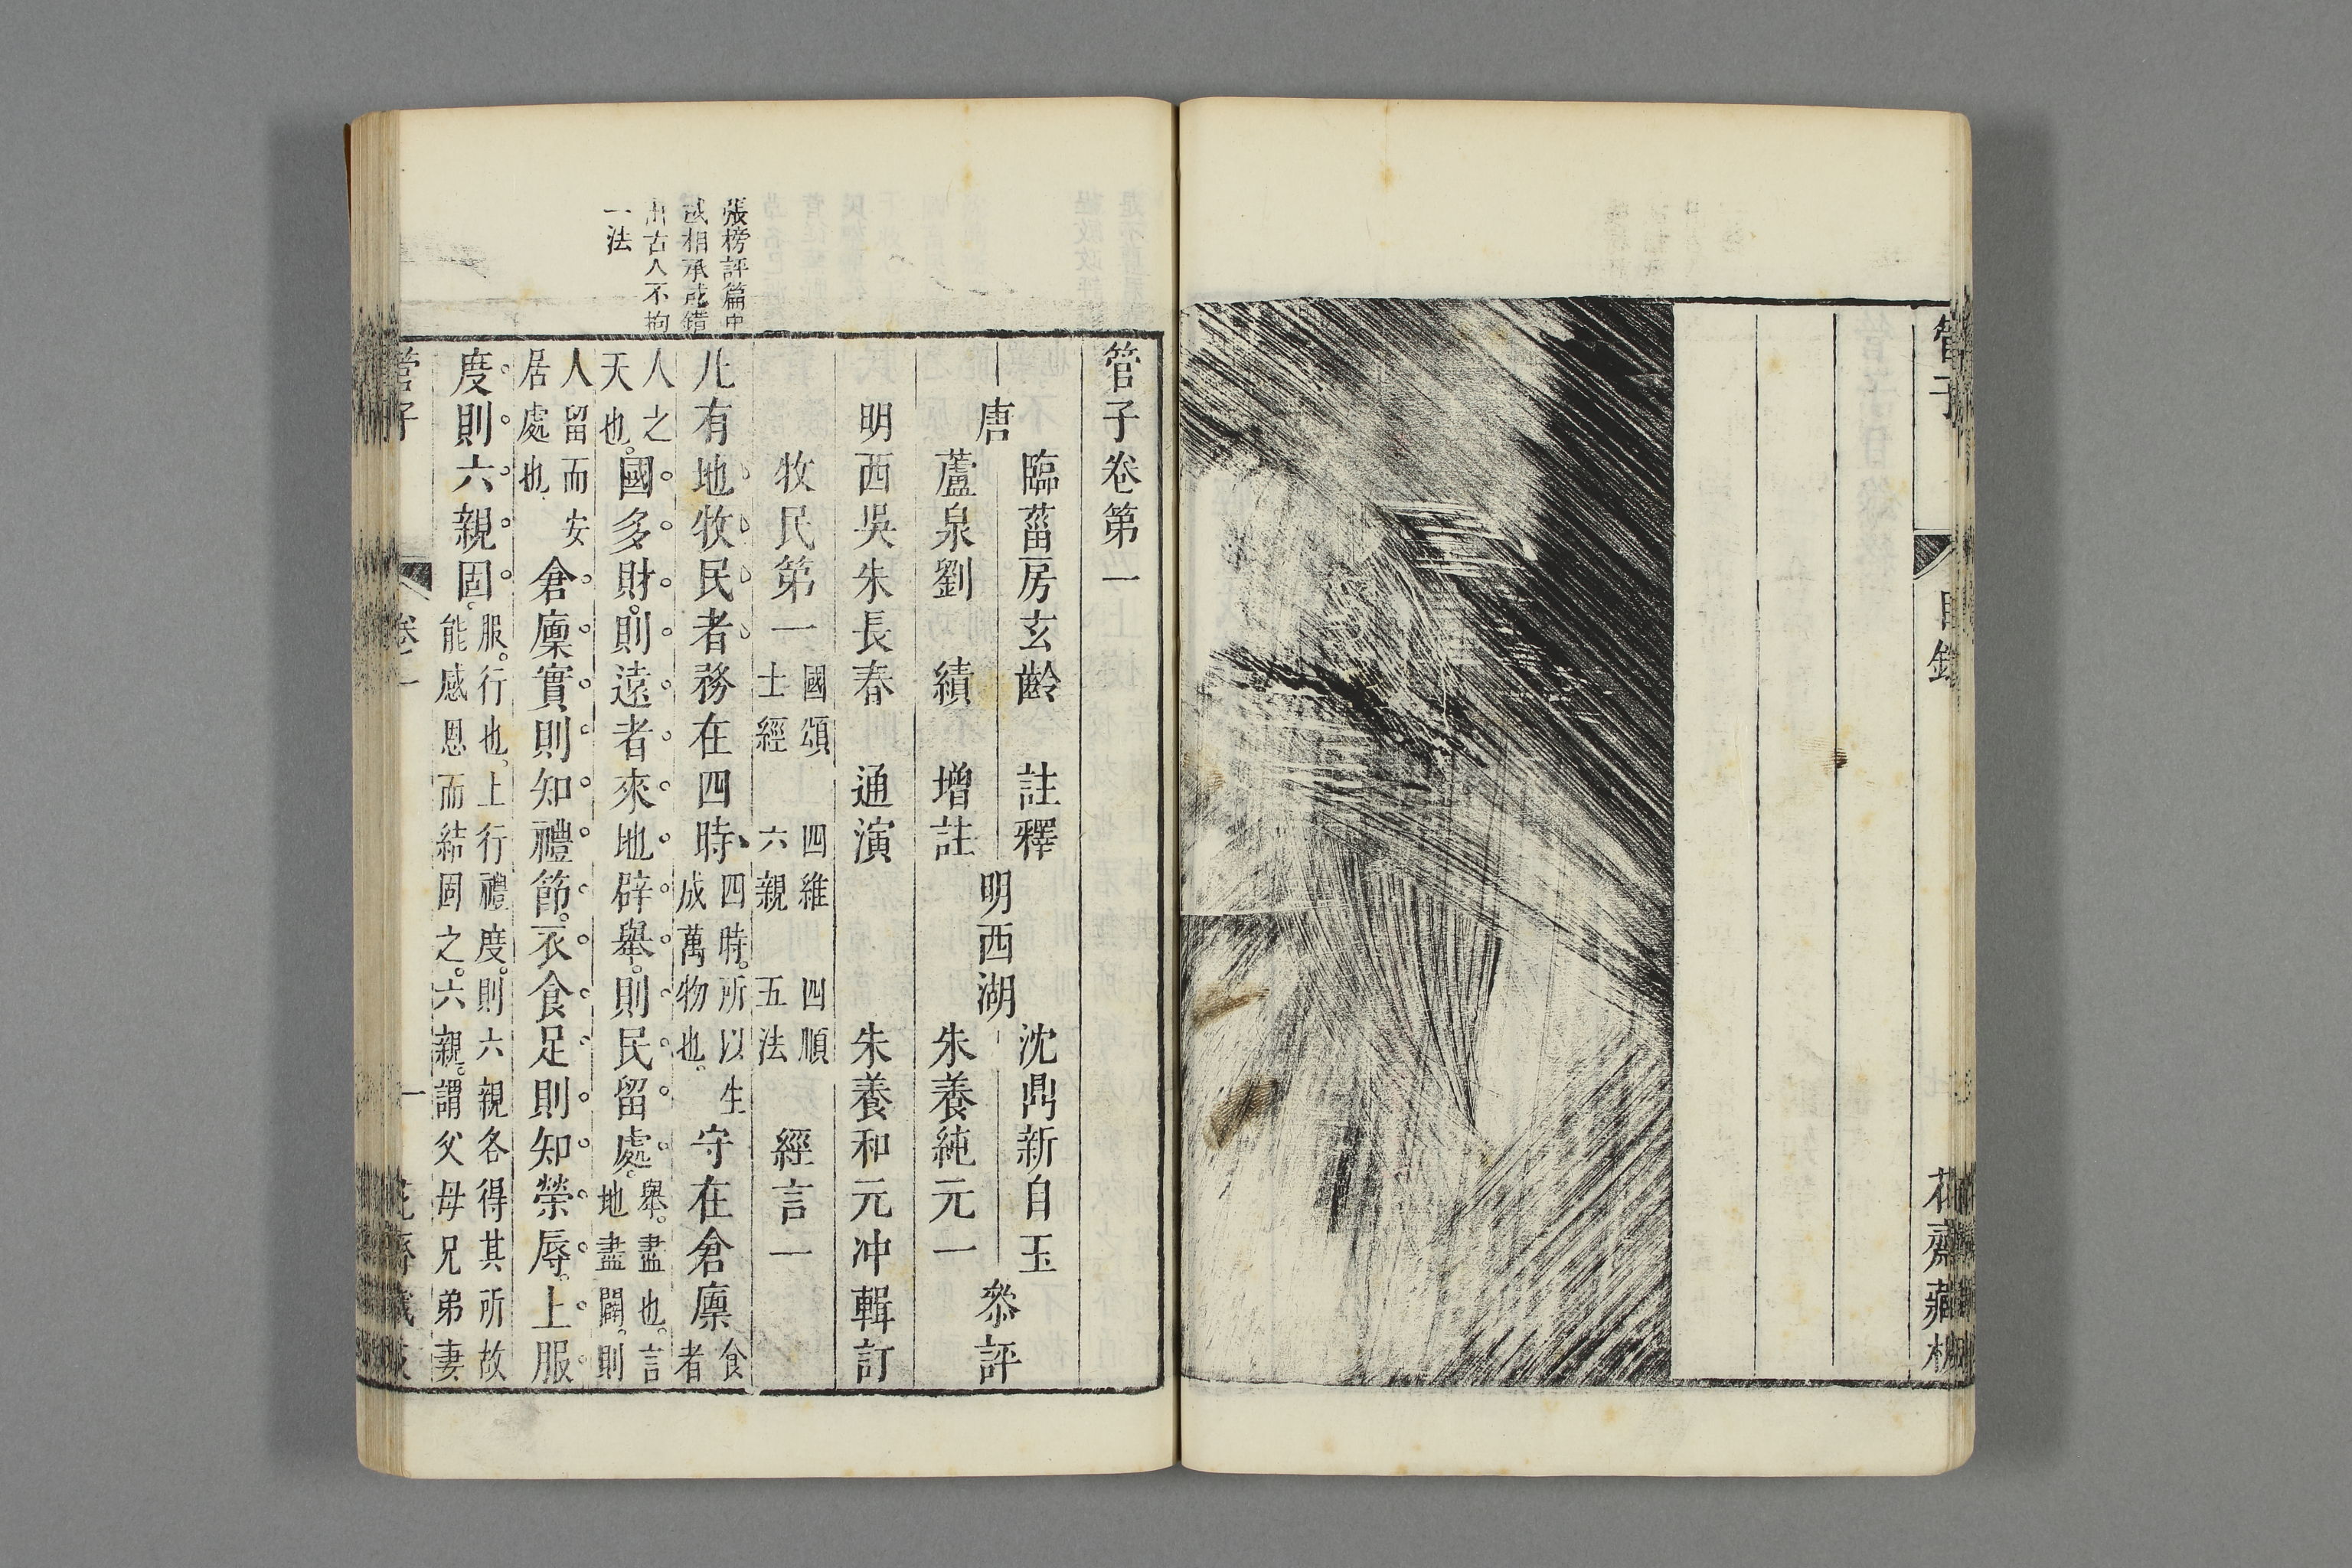 管子
目錄
花齋藏板
張榜評篇中
或相承或錯
出古人不拘
一法
管子卷第一
唐
臨菑房玄齡 註釋
蘆泉劉 績 增註
明西湖
沈鼎新自玉
朱養純元一
參評
明西吳朱長春 通演 朱養和元冲輯訂
牧民第一 國頌 四維 四順
士經 六親 五法 經言一
凡有地牧民者務在四時四時所以生
成萬物也守在倉廩食
者
人之
天也國多財則遠者來地辟舉則民留處舉盡也言
地盡闢則
人留而安
居處也倉廩實則知禮節衣食足則知榮辱上服
度則六親固服行也上行禮度則六親各得其所故
能感恩而結固之六親謂父母兄弟妻
管子
卷一
一